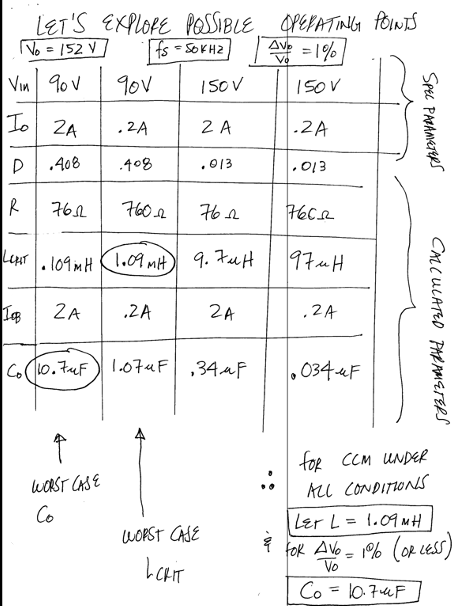 LET'S EXPLORE POSSIBLE OPERATING POINTS
Vo = 152 V fs = 50KHZ ΔVo/Vo = 1%
Vin 90V 90V 150V 150V
Io 2A .2A 2A .2A
D .408 .408 .013 .013
R 76Ω 760Ω 76Ω 760Ω
LCRIT .109mH 1.09mH 9.7uH 97uH
IOB 2A .2A 2A .2A
Co 10.7uF 1.07uF .34uF .034uF
SPEC PARAMETERS
CALCULATED PARAMETERS
WORST CASE
Co
WORST CASE
LCRIT
∴ FOR CCM UNDER
ALL CONDITIONS
LET L = 1.09mH
& FOR ΔVo/Vo = 1% (OR LESS)
Co = 10.7uF